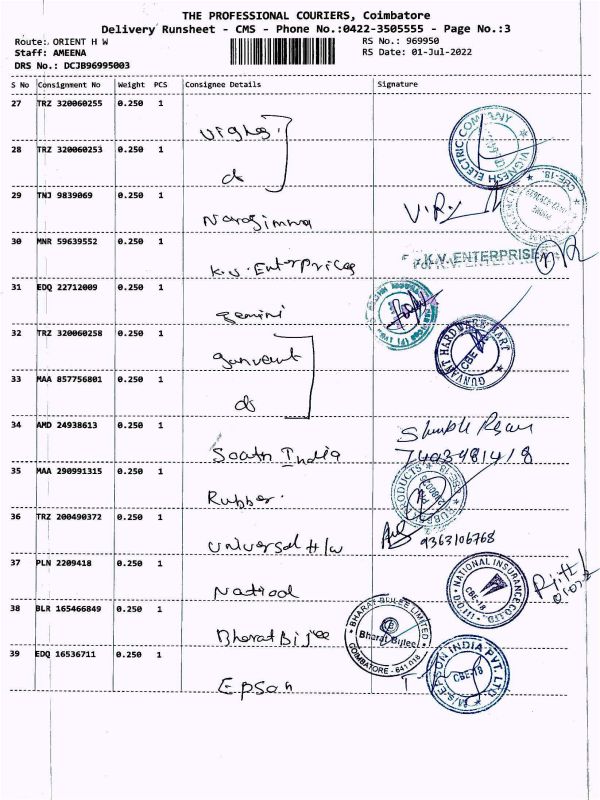 THE PROFESSIONAL COURIERS, Coimbatore
Delivery Runsheet - CMS - Phone No.:0422-3505555 - Page No.:3
Route: ORIENT H W
RS No.: 969950
Staff: AMEENA
RS Date: 01-Jul-2022
DRS No.: DCJB96995003
S No Consignment No Weight PCS Consignee Details Signature
27 TRZ 320060255 0.250 1
VIGNESH ELECTRIC COMPANY
28 TRZ 320060253 0.250 1
do
29 TNJ 9839069 0.250 1
Narasimma
CBE-18.
30 MNR 59639552 0.250 1
K.V. Enterprices
K.V. ENTERPRISE
31 EDQ 22712009 0.250 1
gemini
32 TRZ 320060258 0.250 1
gunvent
GUNVANT HARDWARE MART
CBE
33 MAA 857756801 0.250 1
do
34 AMD 24938613 0.250 1
South India
7403981418
35 MAA 290991315 0.250 1
Rubber.
RUBBER PRODUCTS
CBE-18
36 TRZ 200490372 0.250 1
Universal H/W
9363106768
37 PLN 2209418 0.250 1
National
NATIONAL INSURANCE CO LTD.
CBE-18
38 BLR 165466849 0.250 1
Bharat Bijlee
BHARAT BIJLEE LIMITED
Bharat Bijlee
COIMBATORE - 641 018
39 EDQ 16536711 0.250 1
Epson
M/s. EPSON INDIA PVT. LTD.
CBE-18